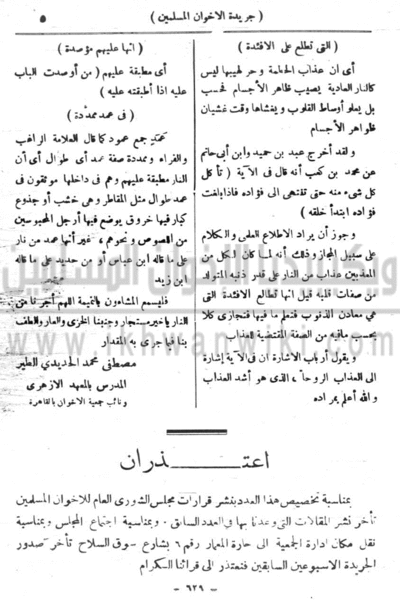 ( جريدة الاخوان المسلمين )
٥
( التى تطلع على الافئدة )
أى ان عذاب الحطمة وحر لهيبها ليس
كالنار العادية يصيب ظاهر الأجسام فحسب
بل يعلو أوساط القلوب ويغشاها وقت غشيان
ظواهر الأجسام
ولقد أخرج عبد بن حميد وابن أبى حاتم
عن محمد بن كعب أنه قال فى الآية ( تأكل
كل شىء منه حتى تنتهى الى فؤاده فاذا بلغت
فؤاده ابتدأ خلقه )
وجوز أن يراد الاطلاع العلمى والكلام
على سبيل المجاز وذلك أنه لما كان لكل من
المعذبين عذاب من النار على قدر ذنبه المتولد
من صفات قلبه قيل انها تطالع الافئدة التى
هى معادن الذنوب فتعلم ما فيها فتجازى كلا
بحسب ما فيه من الصفة المقتضية للعذاب
ويقول أرباب الاشارة ان فى الآية إشارة
الى العذاب الروحانى الذى هو أشد العذاب
والله أعلم بمراده
( انها عليهم مؤصدة )
أى مطبقة عليهم ( من أوصدت الباب
عليه اذا أطبقته عليه )
( فى عمد ممدّدة )
عمد جمع عمود كما قال العلامة الراغب
والفراء وممددة صفة عمد أى طوال أى أن
النار مطبقة عليهم وهم فى داخلها موثقون فى
عمد طوال مثل المقاطر وهى خشب أو جذوع
كبار فيها خروق يوضع فيها أرجل المحبوسين
من اللصوص ونحوهم ، غير أنها عمد من نار
على ما قاله ابن عباس أو من حديد على ما قاله
ابن زيد
فليسمع المشاءون بالنميمة اللهم أجرنا من
النار يا خير مستجار وجنبنا الخزى والعار والطف
بنا فيما جرى به المقدار
مصطفى محمد الحديدى الطير
المدرس بالمعهد الازهرى
ونائب جمعية الاخوان بالقاهرة
اعتذران
بمناسبة تخصيص هذا العدد بنشر قرارات مجلس الشورى العام للاخوان المسلمين
تأخر نشر المقالات التى وعدنا بها فى العدد السابق . وبمناسبة اجتماع المجلس وبمناسبة
نقل مكان ادارة الجمعية الى حارة المعمار رقم ٦ بشارع سوق السلاح تأخر صدور
الجريدة الاسبوعين السابقين فنعتذر الى قرائنا الكرام
- ٦٢٩ -
www.ikhwanwiki.com